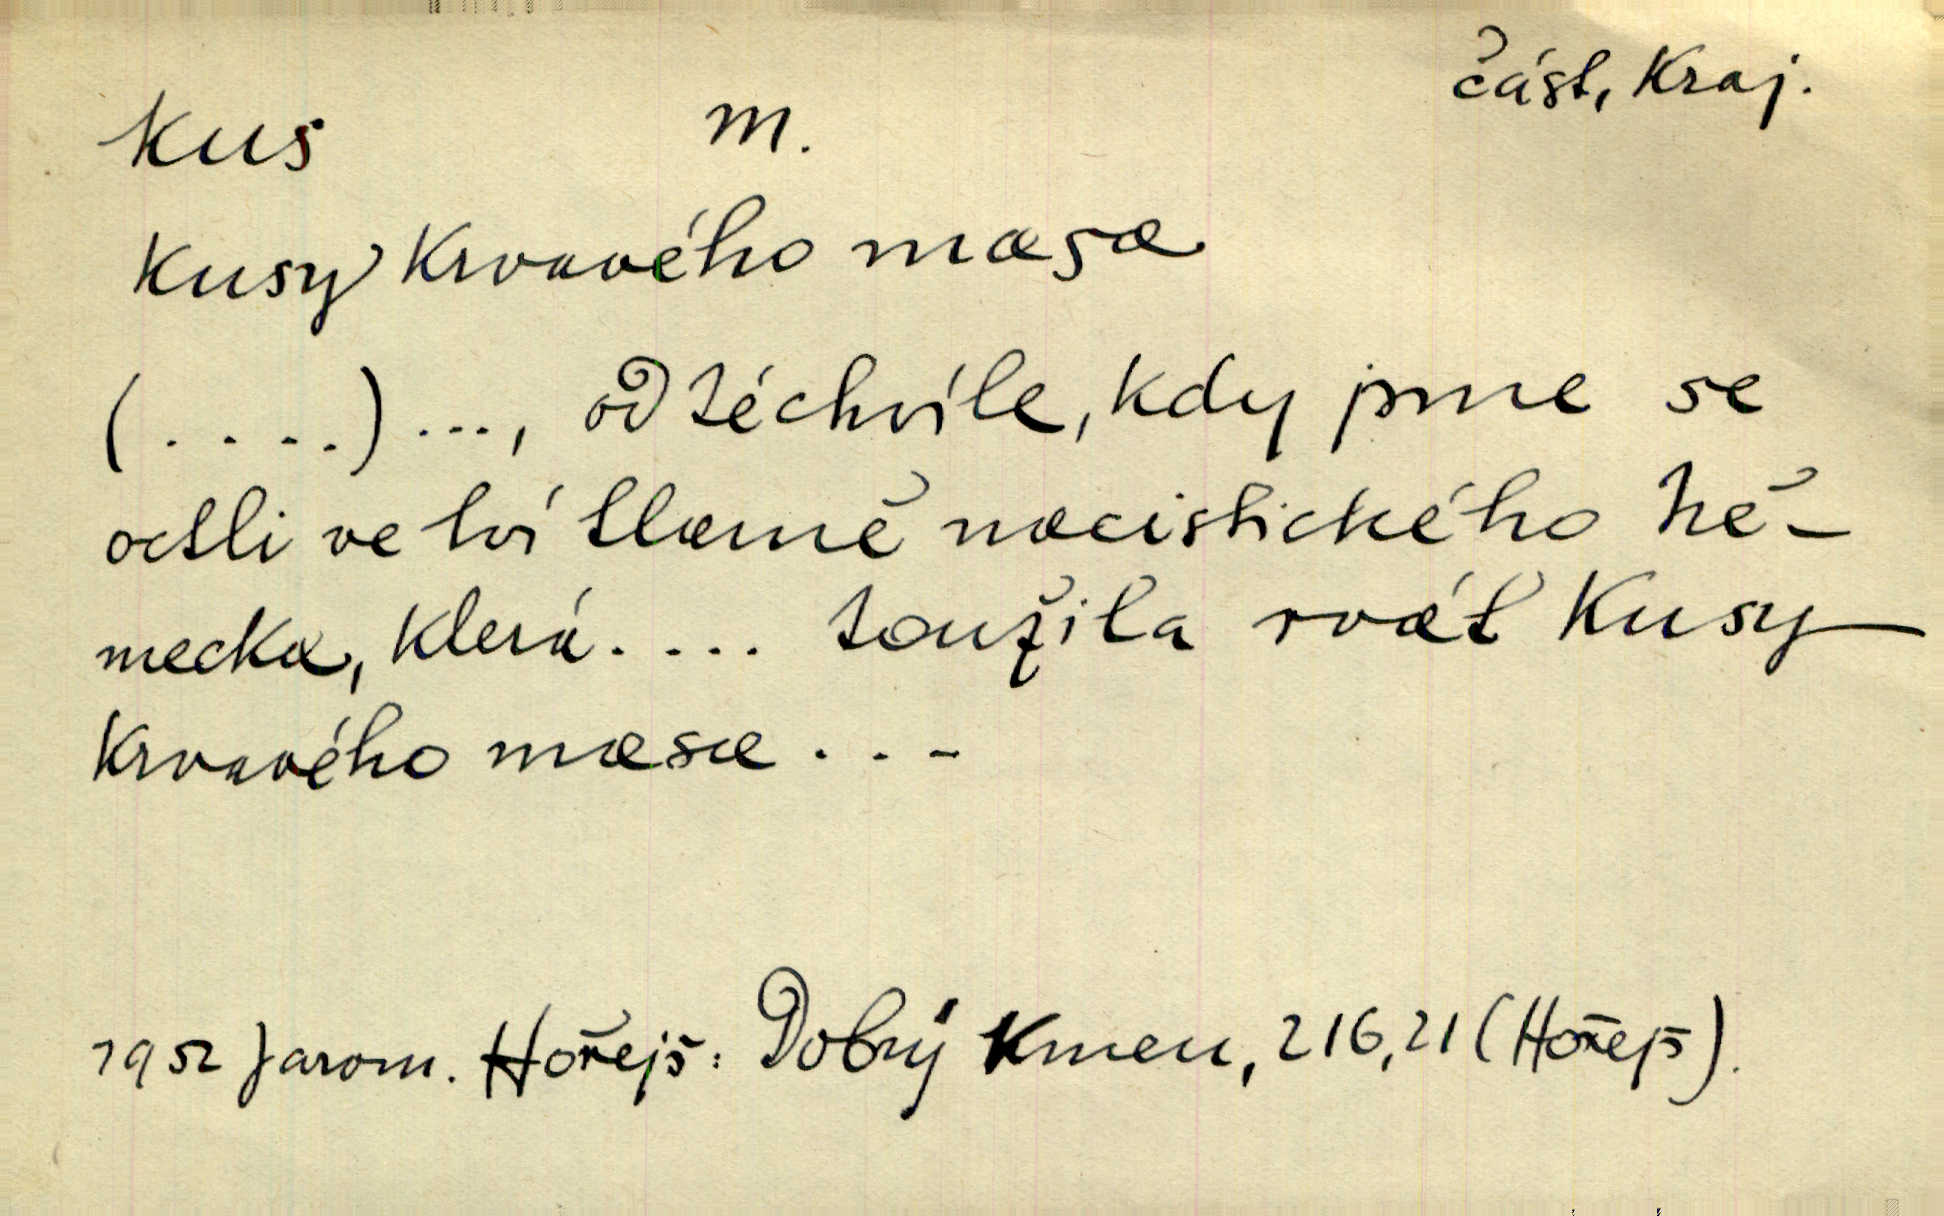 část, kraj.
kus m.
kusy krvavého masa
(. . . .) ..., od té chvíle, kdy jsme se
octli ve lví tlamě nacistického Ně-
mecka, která. . . . toužila rvát kusy
krvavého masa . . -
1952 Jarom. Hořejš: Dobrý kmen, 216,21 (Hořejš).